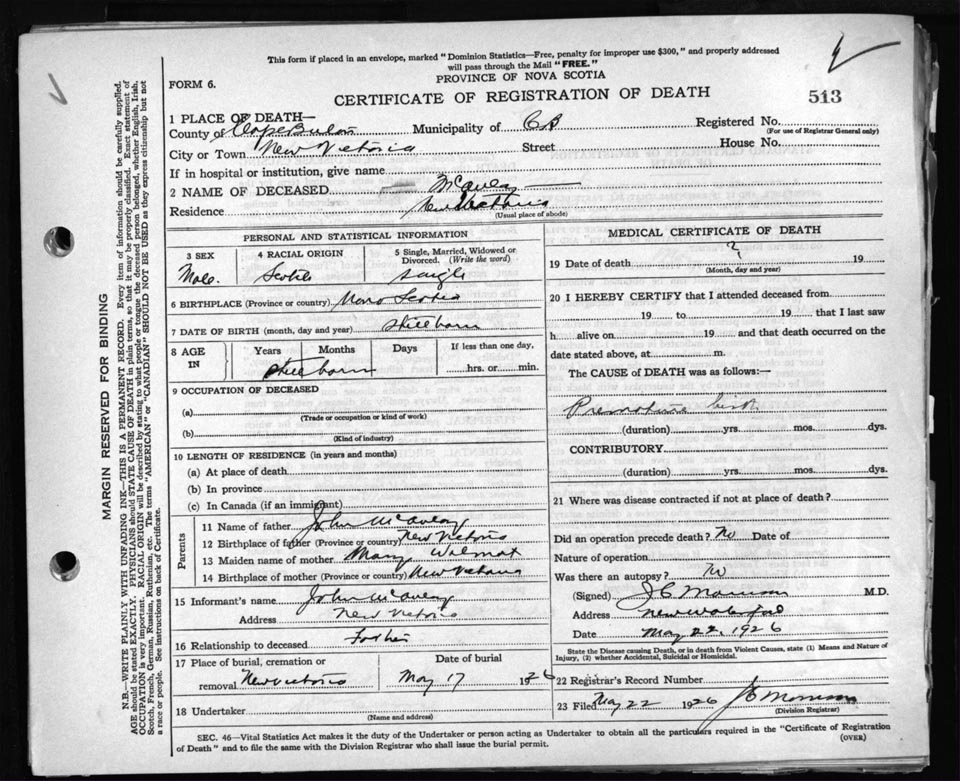 This form if placed in an envelope, marked "Dominion Statistics—Free, penalty for improper use $300," and properly addressed
will pass through the Mail "FREE."
PROVINCE OF NOVA SCOTIA
FORM 6.
CERTIFICATE OF REGISTRATION OF DEATH
513
1 PLACE OF DEATH—
County of Cape Breton Municipality of C B Registered No.
(For use of Registrar General only)
City or Town New Victoria Street House No.
If in hospital or institution, give name
2 NAME OF DECEASED McAuley
Residence New Victoria
(Usual place of abode)
PERSONAL AND STATISTICAL INFORMATION
3 SEX 4 RACIAL ORIGIN 5 Single, Married, Widowed or Divorced. (Write the word)
Male. Scotch single
6 BIRTHPLACE (Province or country) Nova Scotia
7 DATE OF BIRTH (month, day and year) Stillborn
8 AGE IN Years Months Days If less than one day,
Stillborn hrs. or min.
9 OCCUPATION OF DECEASED
(a)
(Trade or occupation or kind of work)
(b)
(Kind of industry)
10 LENGTH OF RESIDENCE (in years and months)
(a) At place of death
(b) In province
(c) In Canada (if an immigrant)
Parents
11 Name of father John McAuley
12 Birthplace of father (Province or country) New Victoria
13 Maiden name of mother Mary
14 Birthplace of mother (Province or country) New Victoria
15 Informant's name John McAuley
Address New Victoria
16 Relationship to deceased Father
17 Place of burial, cremation or Date of burial
removal New Victoria May 17 1926
18 Undertaker
(Name and address)
MEDICAL CERTIFICATE OF DEATH
19 Date of death ? 19
(Month, day and year)
20 I HEREBY CERTIFY that I attended deceased from
19 to 19 that I last saw
h alive on 19 and that death occurred on
date stated above, at m.
The CAUSE of DEATH was as follows:—
Premature birth
(duration) yrs. mos. dys.
CONTRIBUTORY
(duration) yrs. mos. dys.
21 Where was disease contracted if not at place of death?
Did an operation precede death? No Date of
Nature of operation
Was there an autopsy? No
(Signed) J C Morrison M.D.
Address New Waterford
Date May 22, 1926
State the Disease causing Death, or in death from Violent Causes, state (1) Means and Nature of
Injury, (2) whether Accidental, Suicidal or Homicidal.
22 Registrar's Record Number
23 Filed May 22 1926 J C Morrison
(Division Registrar)
SEC. 46—Vital Statistics Act makes it the duty of the Undertaker or person acting as Undertaker to obtain all the particulars required in the "Certificate of Registration
of Death" and to file the same with the Division Registrar who shall issue the burial permit.
(OVER)
MARGIN RESERVED FOR BINDING
N.B.—WRITE PLAINLY WITH UNFADING INK—THIS IS A PERMANENT RECORD. Every item of information should be carefully supplied.
AGE should be stated EXACTLY. PHYSICIANS should STATE CAUSE OF DEATH in plain terms, so that it may be properly classified. Exact statement of
OCCUPATION is very important. RACIAL ORIGIN will be described by stating to what people or tongue the deceased person belonged, whether English, Irish,
Scotch, French, German, Russian, Ruthenian, etc. The terms "AMERICAN" or "CANADIAN" SHOULD NOT BE USED as they express citizenship but not
a race or people. See instructions on back of Certificate.